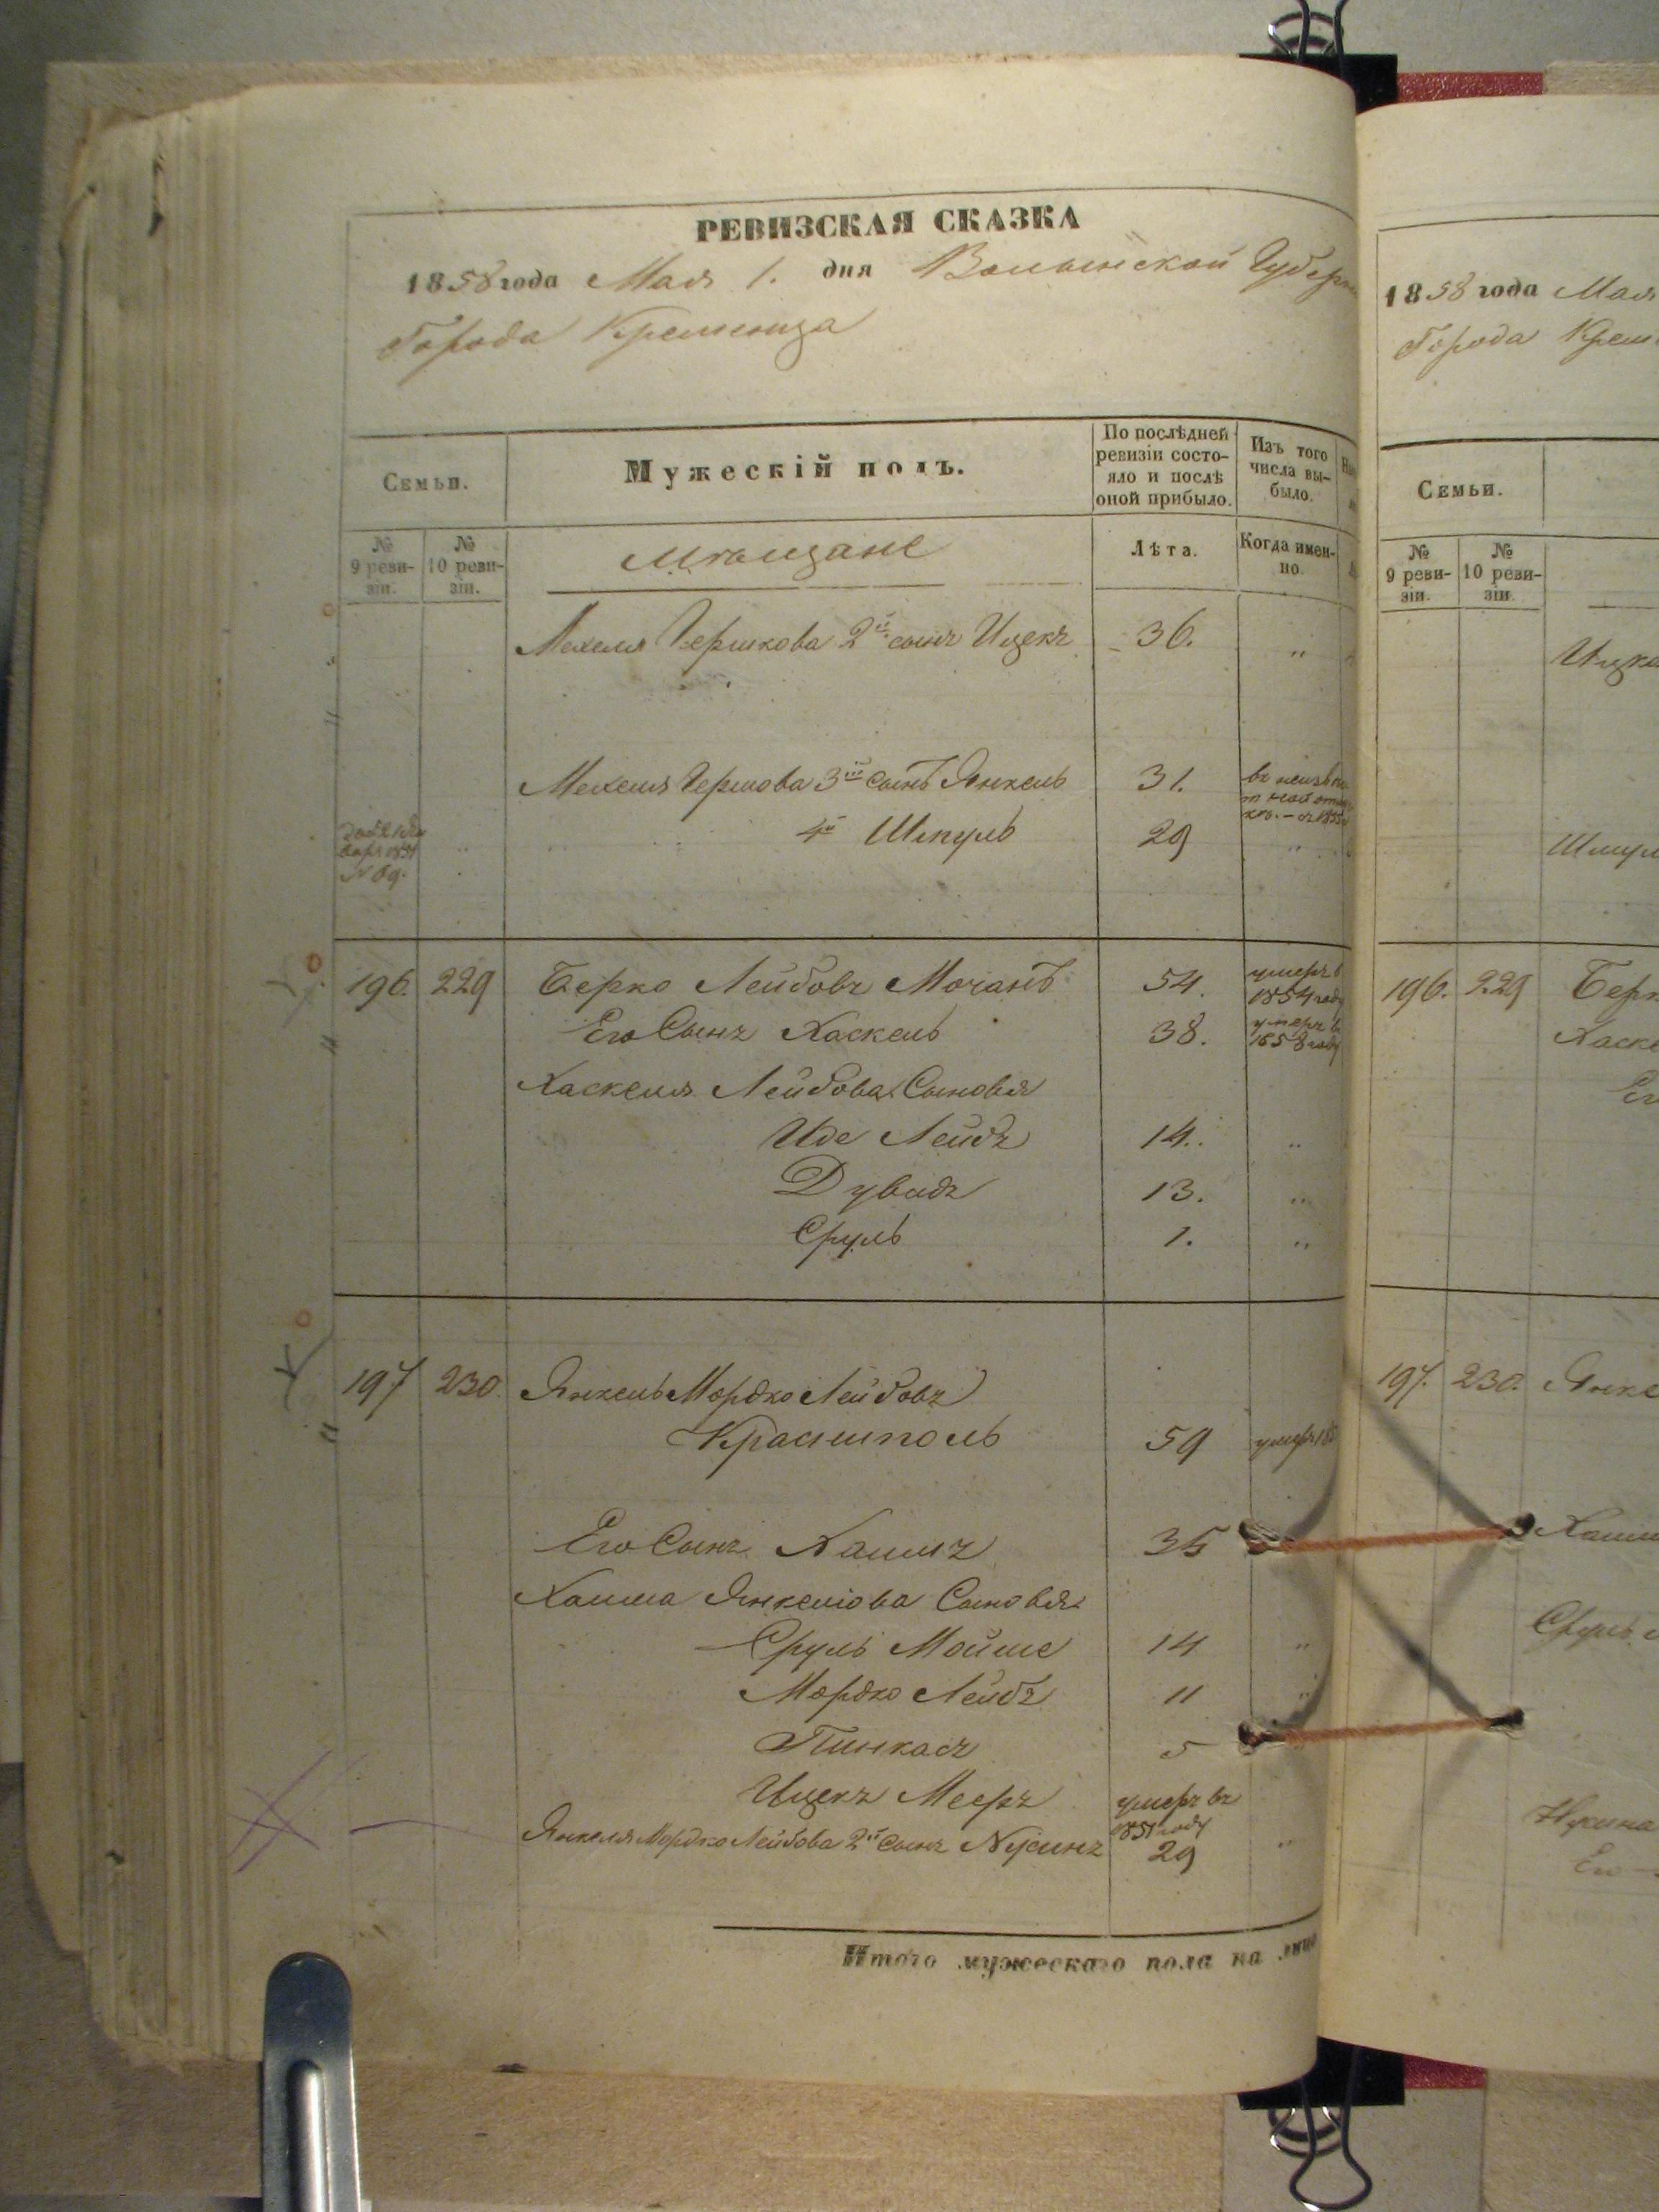 РЕВИЗСКАЯ СКАЗКА
1858 года Мая 1. дня Волынской Губерн
Города Кременца
Семьи.
Мужескій полъ.
По послѣдней ревизіи состояло и послѣ оной прибыло.
Изъ того числа выбыло.
№ 9 ревизіи.
№ 10 ревизіи.
Мѣщане
Лѣта.
Когда именно.
Мехеля Гершкова 2й сынъ Ицекъ 36. "
Мехеля Гершкова 3й сынъ Янкель 31.
4й Шмуль 29 "
№ 69.
196. 229 Берко Лейбовъ Мочанъ 54. умеръ в 1854 году
Его Сынъ Хаскель 38. умеръ в 1858 году
Хаскеля Лейбова Сыновья
Иде Лейбъ 14. "
Дувидъ 13. "
Сруль 1. "
197 230. Янкель Мордко Лейбовъ
Красиполь 59 умеръ 185
Его Сынъ Хаимъ 35
Хаима Янкелюва Сыновья
Сруль Мойше 14 "
Мордко Лейбъ 11 "
Пинкасъ 5
Ицекъ Мееръ умеръ въ 1851 году
Янкеля Мордко Лейбова 2й Сынъ Нусинъ 29 "
Итого мужескаго пола на лицо
1858 года Мая
Города Крем
Семьи.
№ 9 ревизіи.
№ 10 ревизіи.
Ицка
Шмул
196. 229 Берк
Хаске
Ег
197. 230. Янке
Хаим
Сруль
Нусина
Его